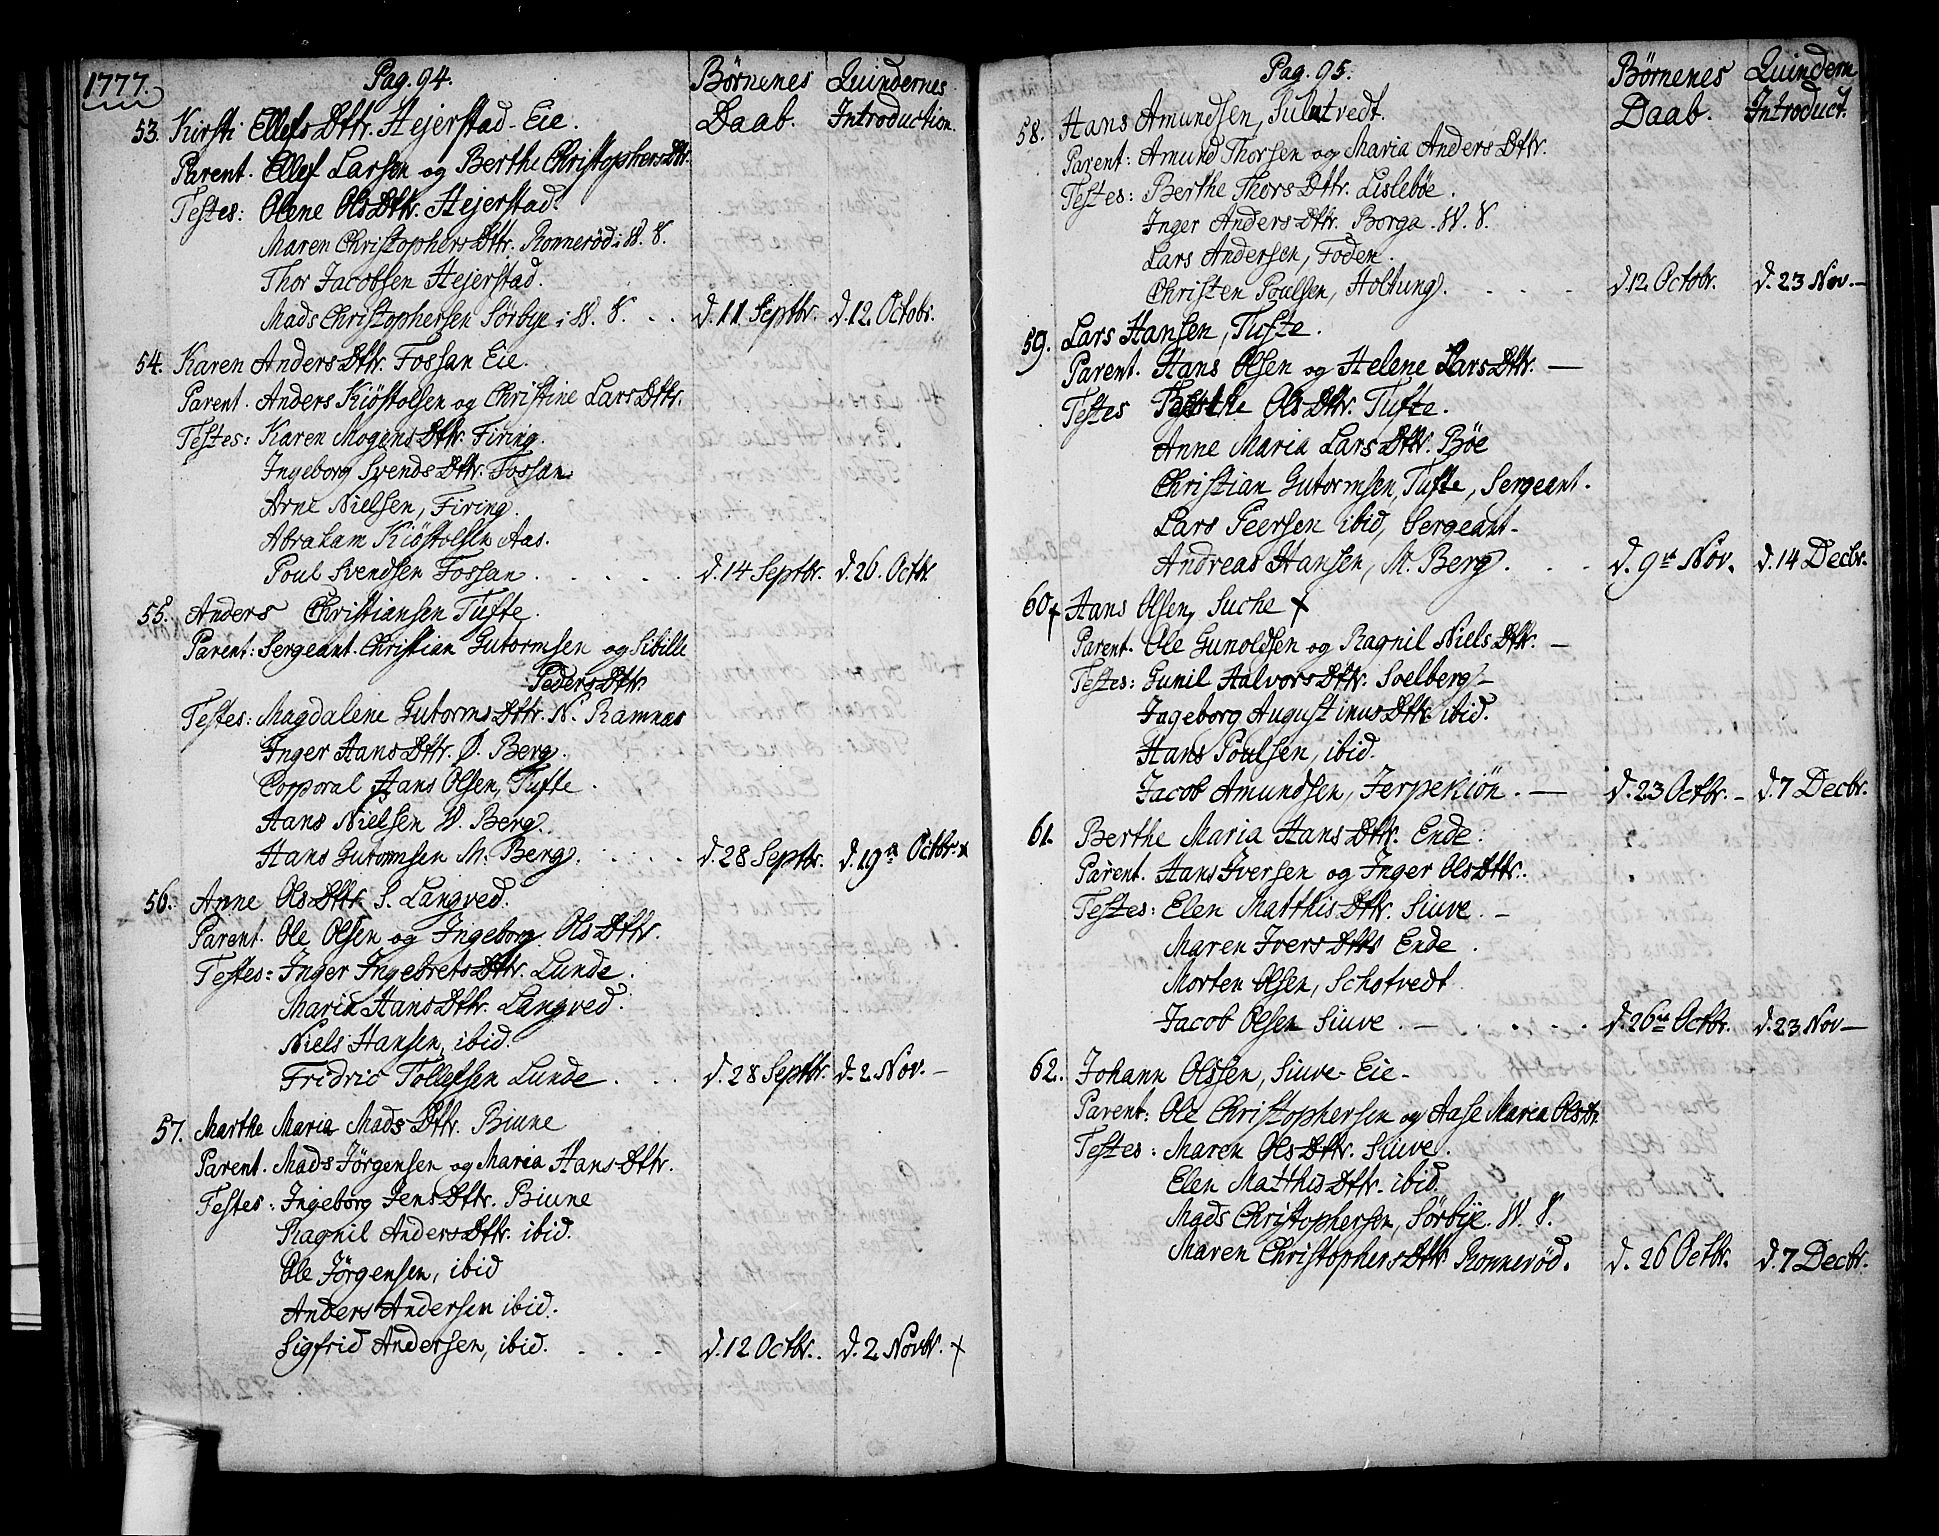 1777.
Pag. 94.
Børnenes Daab.
Quindernes Introduction.
53. Kirsti Ellefs Dttr. Hejerstad-Eie.
Parent. Ellef Larsen og Berthe Christophers Dtr.
Testes: Olene Ols Dttr. Hejerstad.
Maren Christophers Dttr. Ronnerød i W. S.
Thor Jacobsen Hejerstad.
Mads Christophersen Sørbye i W. S. . . d. 11 Septbr. d. 12 Octobr.
54. Karen Anders Dttr. Fossan Eie.
Parent. Anders Kiöstolsen og Christine Lars Dttr.
Testes: Karen Mogens Dttr. Firing.
Ingeborg Svends Dttr. Fossan.
Arne Nielsen, Firing.
Abraham Kiöstolsen Aas.
Poul Svendsen Fossan . . . . . d. 14 Septbr. d. 26. Octbr.
55. Anders Christiansen Tufte.
Parent: Sergeant Christian Gutormsen og Sibille
Peders Dttr.
Testes: Magdalene Gutorms Dttr. N. Ramnas
Inger Hans Dttr. Ø. Berg.
Corporal Hans Olsen, Tufte.
Hans Nielsen W. Berg.
Hans Gutormsen M. Berg. . . . . d. 28 Septbr. d. 19de Octbr. x
56. Anne Ols Dttr. S. Langved.
Parent. Ole Olsen og Ingeborg Ols Dttr.
Testes: Inger Ingebrets Dttr. Lunde.
Maria Hans Dttr. Langved.
Niels Hansen, ibid.
Fridric Tollefsen Lunde . . . d. 28 Septbr. d. 2. Nov. -
57. Marthe Maria Mads Dttr. Biune
Parent. Mads Jörgensen og Maria Hans Dttr.
Testes: Ingeborg Jens Dttr. Biune
Ragnil Anders Dttr. ibid.
Ole Jörgensen, ibid
Anders Andersen ibid.
Sigfrid Andersen, ibid. . . . d. 12 Octbr. d. 2. Novbr. x
Pag. 95.
Børnenes Daab.
Quindern Introduct.
58. Hans Amundsen, Tulutvedt.
Parent: Amund Thorsen og Maria Anders Dttr.
Testes: Berthe Thors Dttr. Lislebøe.
Inger Anders Dttr. Borga. W. S.
Lars Andersen, Foden.
Christen Poulsen, Holtung. . . . . d. 12. Octobr. d. 23 Nov. —
59. Lars Hansen, Tufte.
Parent. Hans Olsen og Helene Lars Dttr. —
Testes Berthe Ols Dttr. Tufte.
Anne Maria Lars Dttr. Bøe
Christian Gutormsen, Tufte, Sergeant.
Lars Peersen ibid, Sergeant-
Andreas Hansen, M. Berg. . . . d. 9de Nov. d. 14 Decbr.
60. x Hans Olsen, Suche x
Parent. Ole Gunoldsen og Ragnil Niels Dttr. —
Testes: Gunil Halvors Dttr. Soelberg -
Ingeborg Augustinus Dttr. ibid.
Hans Poulsen, ibid.
Jacob Amundsen, Jerpekiön. — d. 23 Octbr. - d. 7 Decbr.
61. Berthe Maria Hans Dttr. Ende.
Parent. Hans Iversen og Inger Ols Dttr.
Testes: Elen Matthis Dttr. Siuve. -
Maren Ivers Dttr Ende.
Morten Olsen, Schotvedt
Jacob Olsen Siuve. — . . . . d. 26de Octbr. d. 23 Nov —
62. Johann Olssen, Siuve-Eie-
Parent. Ole Christophersen og Aase Maria Olsdtr.
Testes: Maren Ols Dttr. Siuve.
Elen Matthis Dttr. ibid.
Mads Christophersen, Sörbye. W. S.
Maren Christophers Dttr Ronnerød. d. 26 Octbr. d. 7 Decbr.